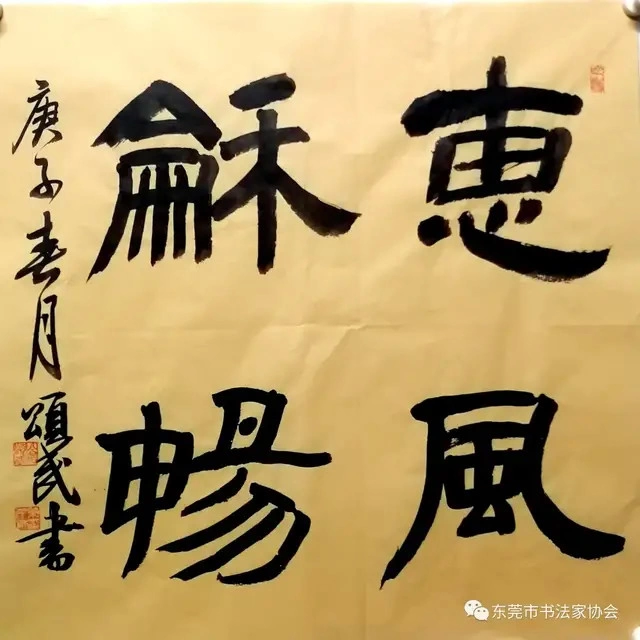 恵風
龢暢
庚子春月頌民書
东莞市书法家协会